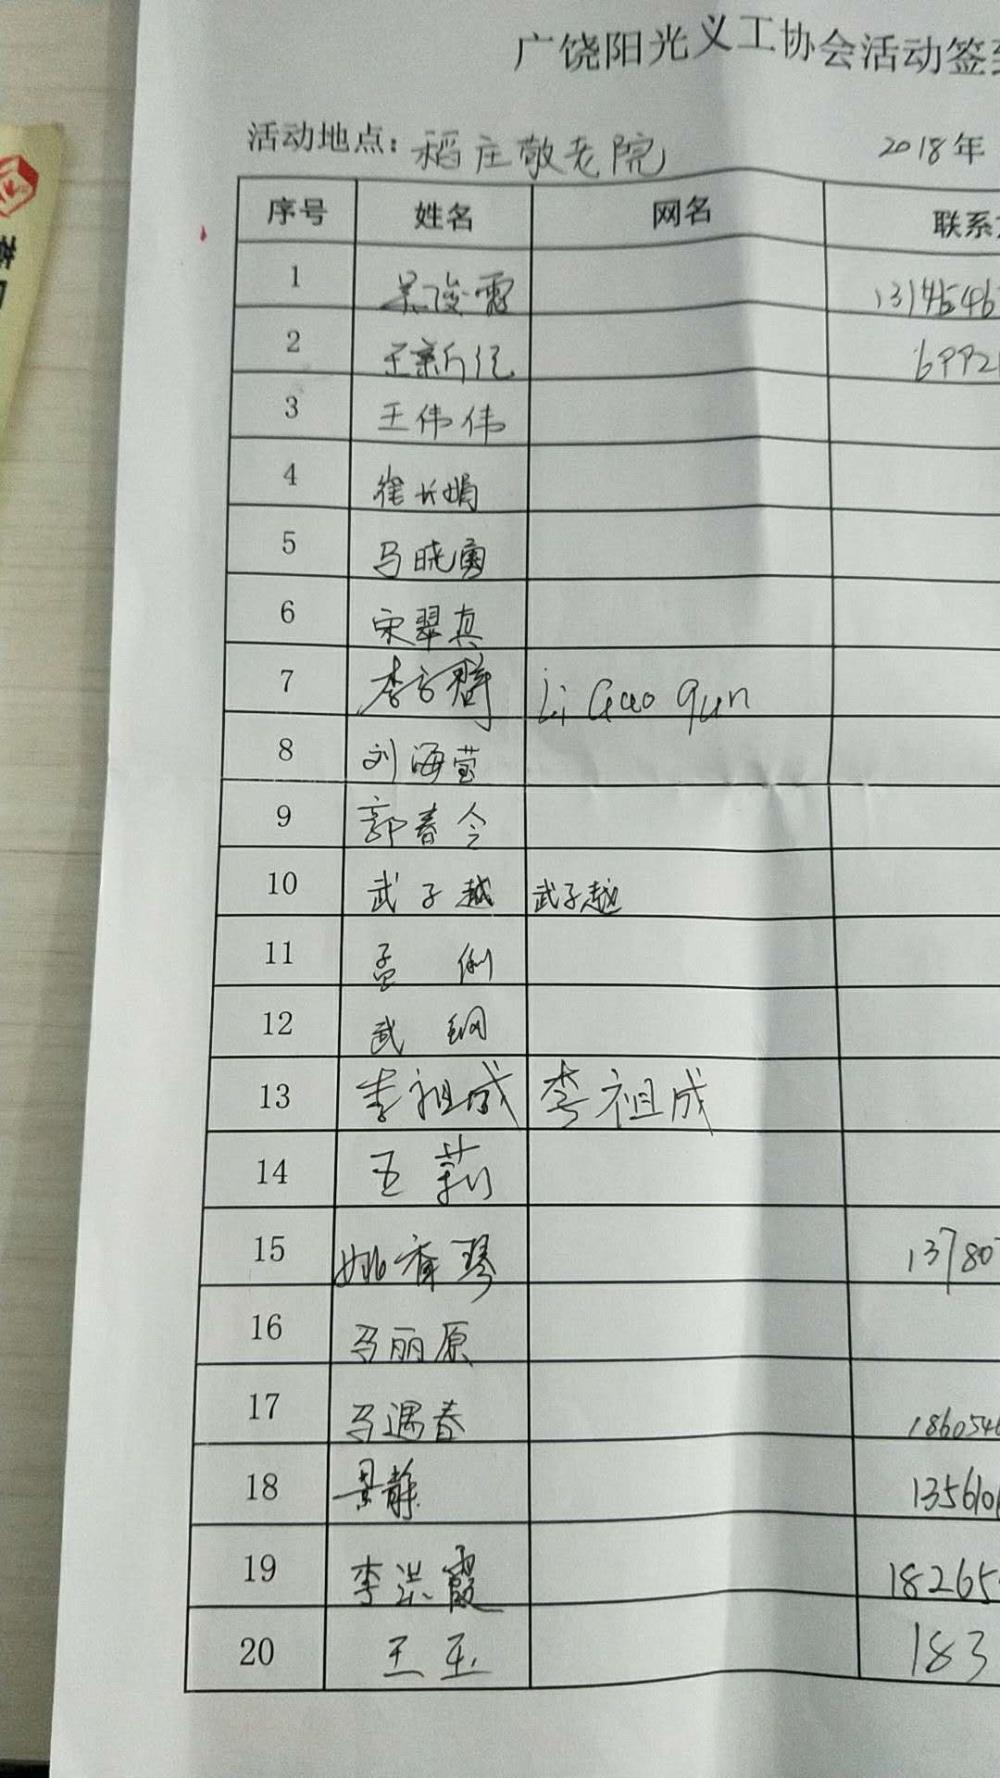 广饶阳光义工协会活动签到
活动地点：稻庄敬老院 2018年
序号 姓名 网名 联系
1 吴俊霞 1314546
2 王新 6992
3 王伟伟
4 徐长娟
5 马晓勇
6 宋翠真
7 李 Li Guo qun
8 刘海莹
9 郭春令
10 武子越 武子越
11 孟俐
12 武钢
13 李祖成 李祖成
14 王莉
15 姚香琴 13780
16 马丽原
17 马遇春 186054
18 景静 135610
19 李洪霞 18265
20 王玉 183